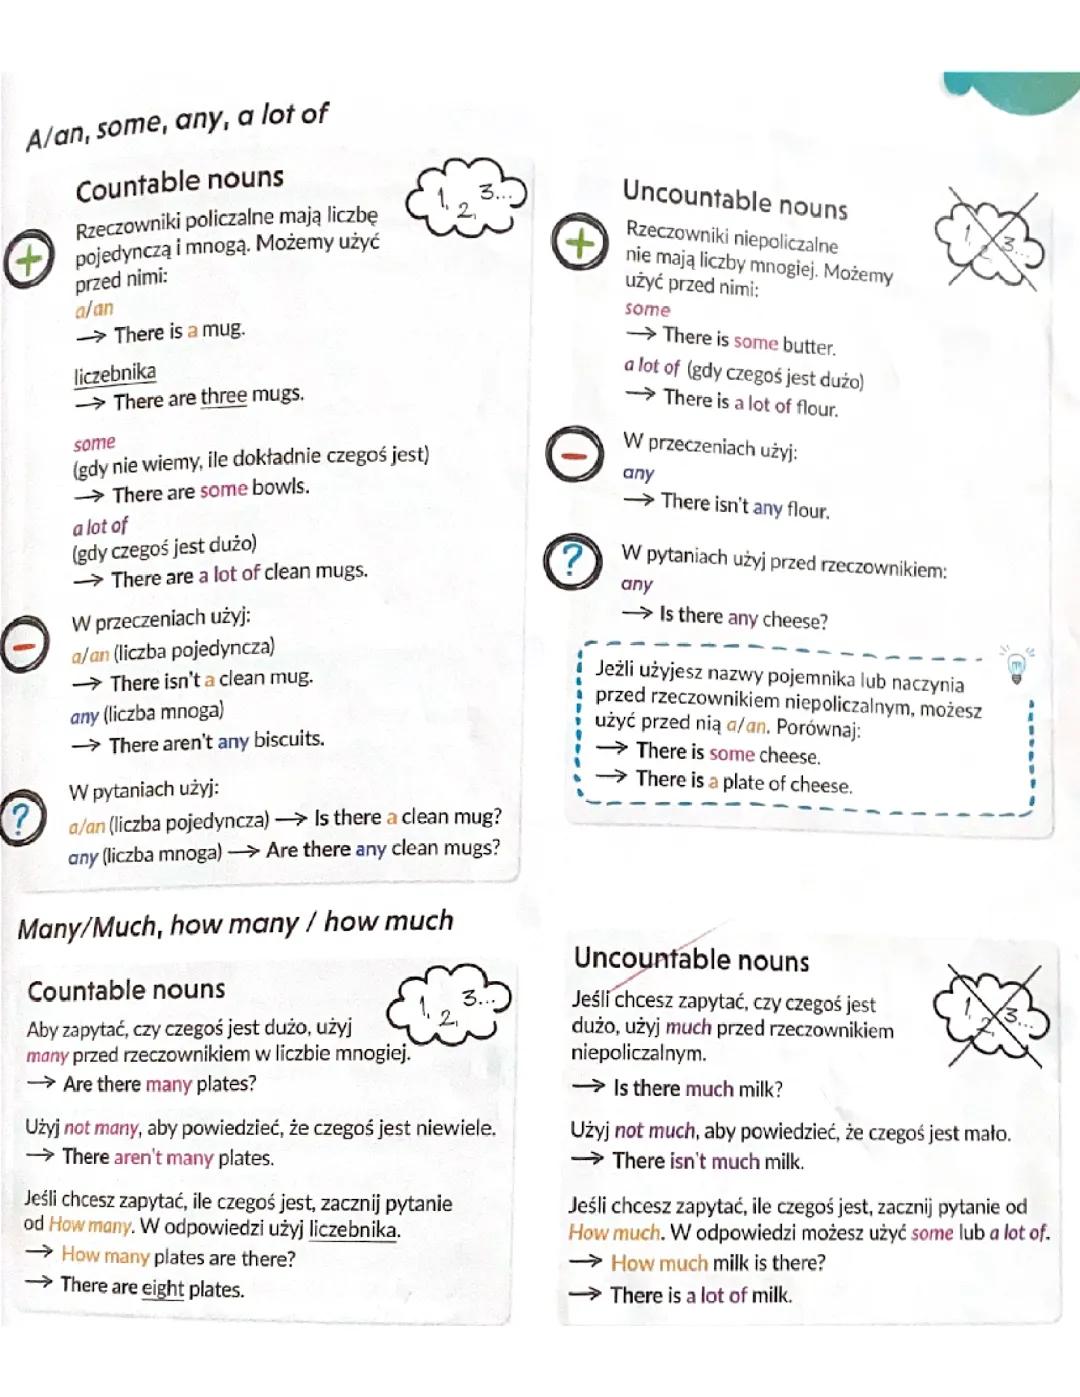 A/an, some, any, a lot of
Countable nouns
1, 2, 3...
Rzeczowniki policzalne mają liczbę
pojedynczą i mnogą. Możemy użyć
przed nimi:
a/an
→ There is a mug.
liczebnika
→ There are three mugs.
some
(gdy nie wiemy, ile dokładnie czegoś jest)
→ There are some bowls.
a lot of
(gdy czegoś jest dużo)
→ There are a lot of clean mugs.
W przeczeniach użyj:
a/an (liczba pojedyncza)
→ There isn't a clean mug.
any (liczba mnoga)
→ There aren't any biscuits.
W pytaniach użyj:
a/an (liczba pojedyncza) → Is there a clean mug?
any (liczba mnoga) → Are there any clean mugs?
Uncountable nouns
1, 2, 3...
Rzeczowniki niepoliczalne
nie mają liczby mnogiej. Możemy
użyć przed nimi:
some
→ There is some butter.
a lot of (gdy czegoś jest dużo)
→ There is a lot of flour.
W przeczeniach użyj:
any
→ There isn't any flour.
W pytaniach użyj przed rzeczownikiem:
any
→ Is there any cheese?
Jeżli użyjesz nazwy pojemnika lub naczynia
przed rzeczownikiem niepoliczalnym, możesz
użyć przed nią a/an. Porównaj:
→ There is some cheese.
→ There is a plate of cheese.
Many/Much, how many / how much
Countable nouns
1, 2, 3...
Aby zapytać, czy czegoś jest dużo, użyj
many przed rzeczownikiem w liczbie mnogiej.
→ Are there many plates?
Użyj not many, aby powiedzieć, że czegoś jest niewiele.
→ There aren't many plates.
Jeśli chcesz zapytać, ile czegoś jest, zacznij pytanie
od How many. W odpowiedzi użyj liczebnika.
→ How many plates are there?
→ There are eight plates.
Uncountable nouns
1, 2, 3...
Jeśli chcesz zapytać, czy czegoś jest
dużo, użyj much przed rzeczownikiem
niepoliczalnym.
→ Is there much milk?
Użyj not much, aby powiedzieć, że czegoś jest mało.
→ There isn't much milk.
Jeśli chcesz zapytać, ile czegoś jest, zacznij pytanie od
How much. W odpowiedzi możesz użyć some lub a lot of.
→ How much milk is there?
→ There is a lot of milk.